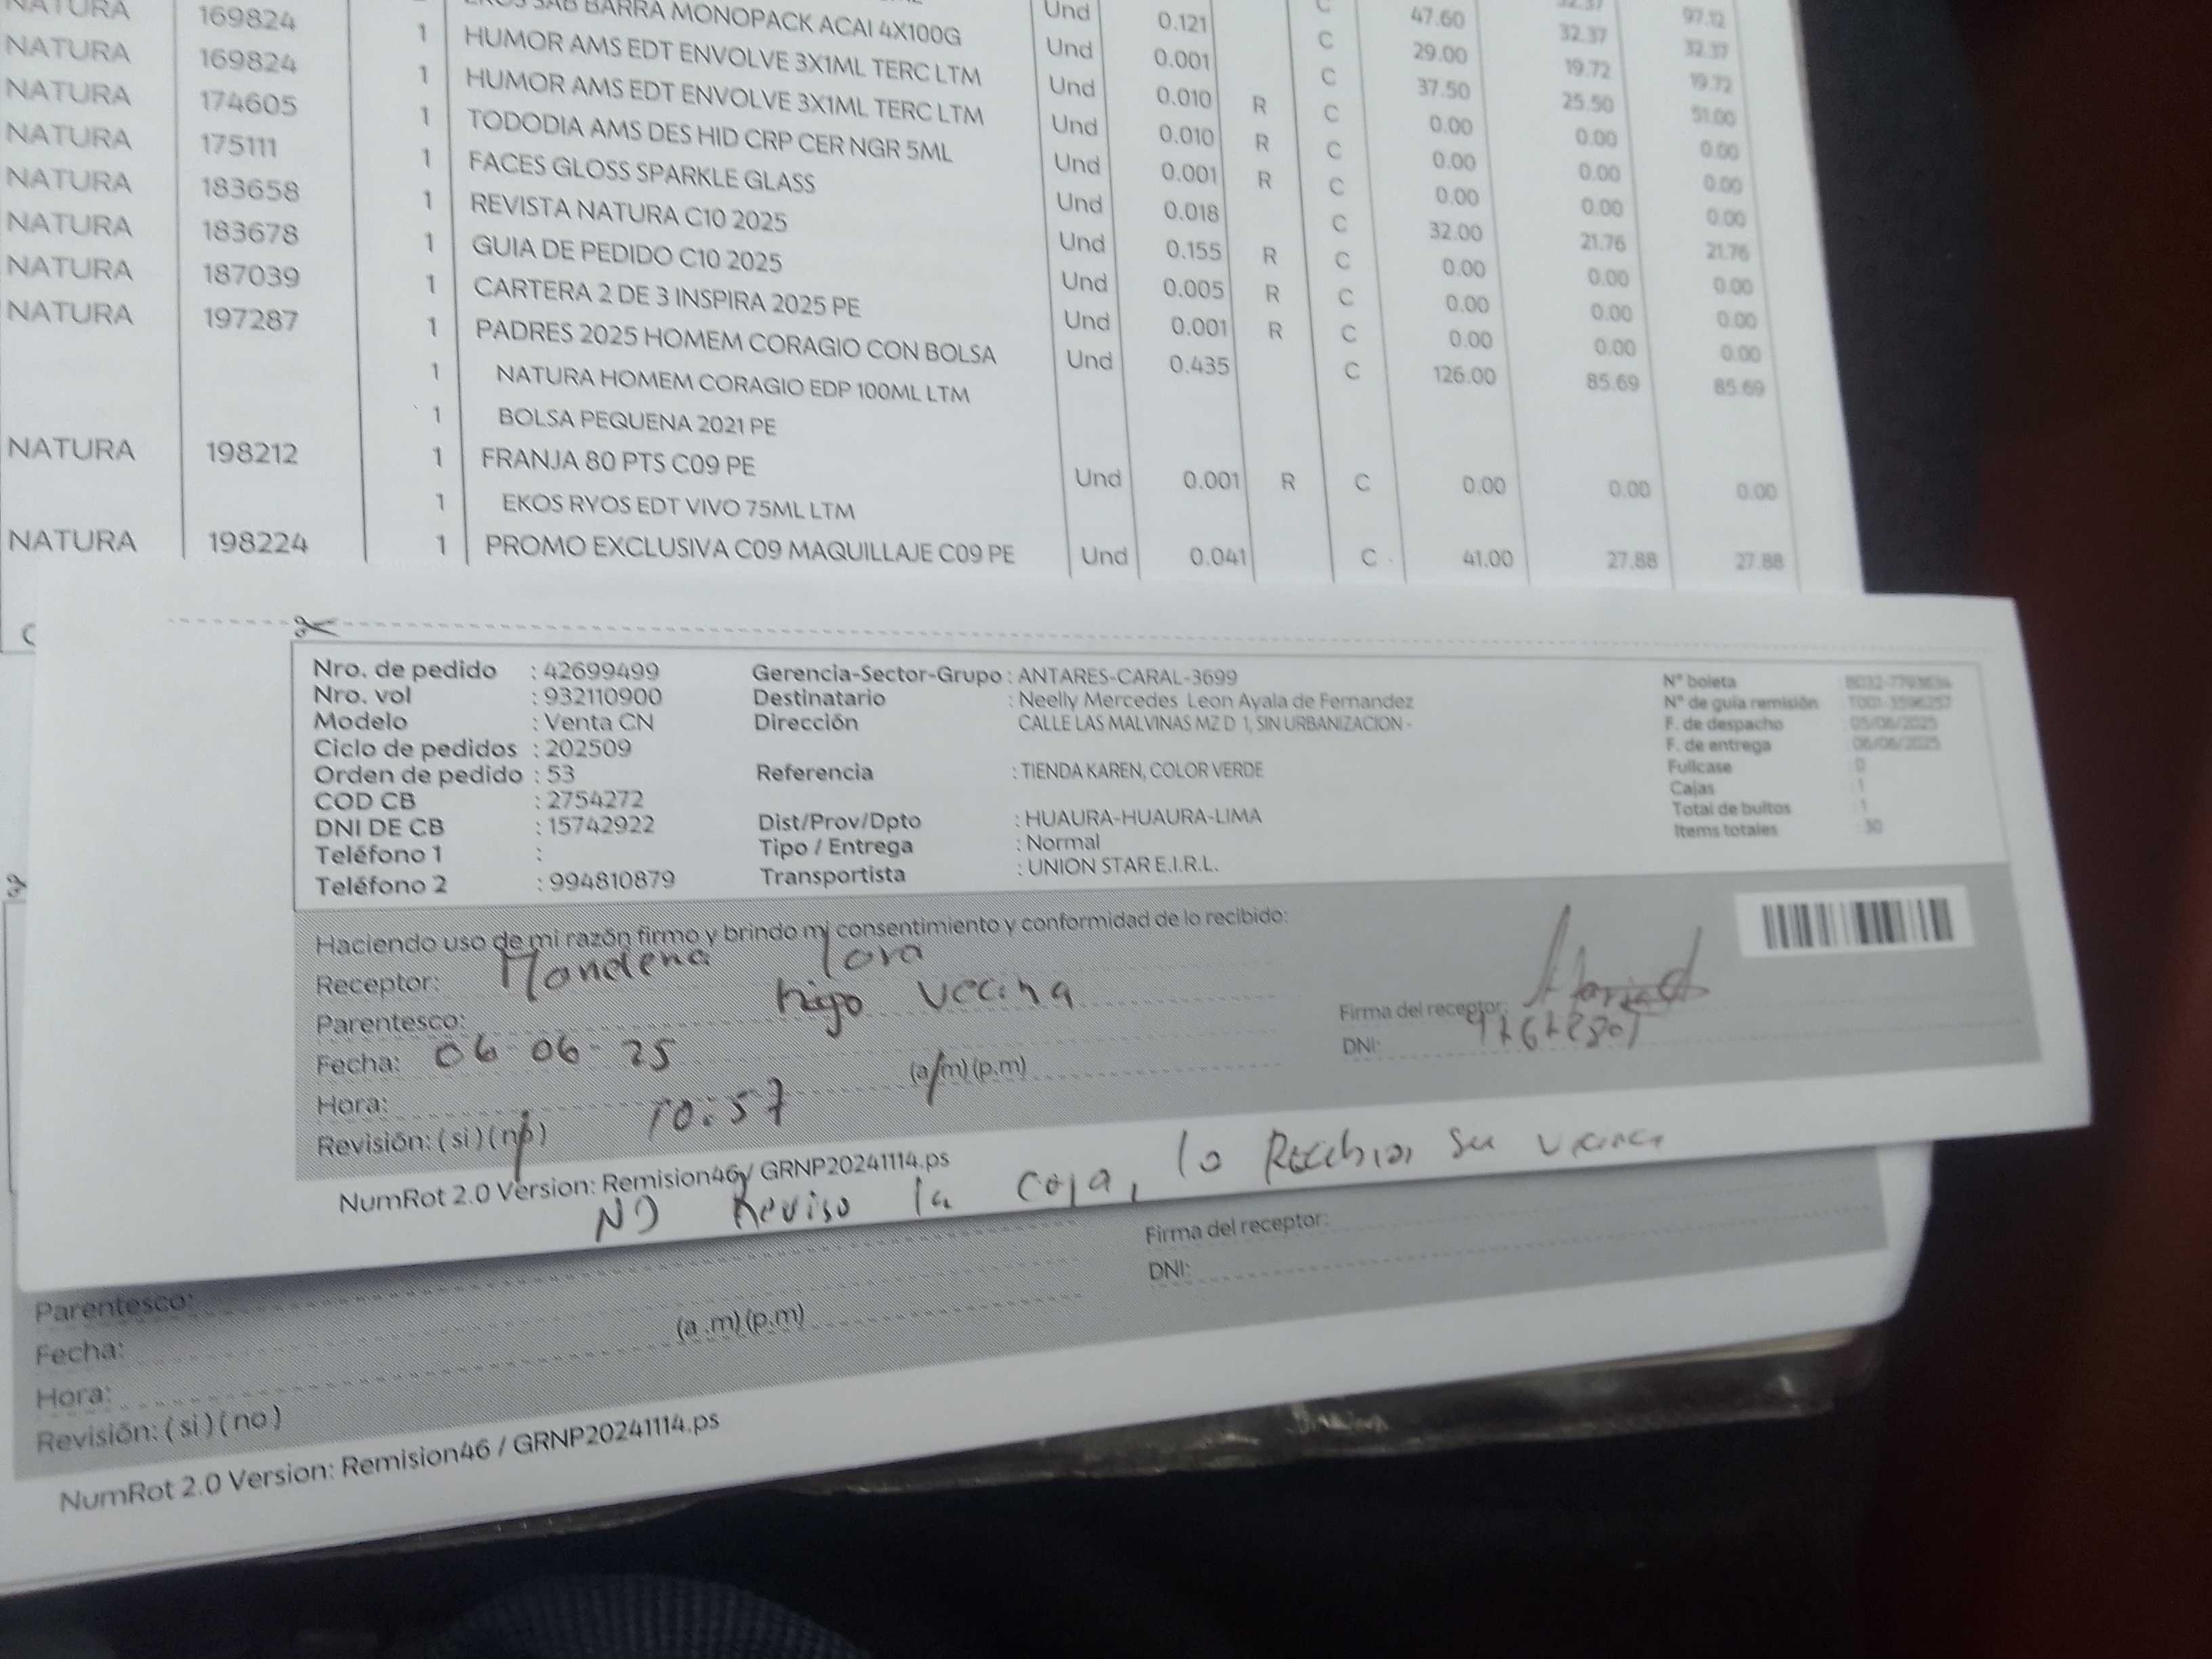 NATURA 169824 1 EKOS SAB BARRA MONOPACK ACAI 4X100G Und 0.121 C 47.60 32.37 97.12
NATURA 169824 1 HUMOR AMS EDT ENVOLVE 3X1ML TERC LTM Und 0.001 C 29.00 32.37 32.37
NATURA 174605 1 HUMOR AMS EDT ENVOLVE 3X1ML TERC LTM Und 0.010 R C 37.50 19.72 19.72
NATURA 175111 1 TODODIA AMS DES HID CRP CER NGR 5ML Und 0.010 R C 0.00 25.50 51.00
NATURA 183658 1 FACES GLOSS SPARKLE GLASS Und 0.001 R C 0.00 0.00 0.00
NATURA 183678 1 REVISTA NATURA C10 2025 Und 0.018 C 0.00 0.00 0.00
NATURA 187039 1 GUIA DE PEDIDO C10 2025 Und 0.155 R C 32.00 0.00 0.00
NATURA 197287 1 CARTERA 2 DE 3 INSPIRA 2025 PE Und 0.005 R C 0.00 21.76 21.76
1 PADRES 2025 HOMEM CORAGIO CON BOLSA Und 0.001 R C 0.00 0.00 0.00
1 NATURA HOMEM CORAGIO EDP 100ML LTM Und 0.435 C 0.00 0.00 0.00
126.00 0.00 0.00
85.69 85.69
1 BOLSA PEQUENA 2021 PE
NATURA 198212 1 FRANJA 80 PTS C09 PE Und 0.001 R C 0.00 0.00 0.00
1 EKOS RYOS EDT VIVO 75ML LTM
NATURA 198224 1 PROMO EXCLUSIVA C09 MAQUILLAJE C09 PE Und 0.041 C 41.00 27.88 27.88
Nro. de pedido : 42699499 Gerencia-Sector-Grupo : ANTARES-CARAL-3699 N° boleta
Nro. vol : 932110900 Destinatario : Neelly Mercedes Leon Ayala de Fernandez N° de guía remisión
Modelo : Venta CN Dirección CALLE LAS MALVINAS MZ D 1, SIN URBANIZACION - F. de despacho : 05/06/2025
Ciclo de pedidos : 202509 F. de entrega : 06/06/2025
Orden de pedido : 53 Referencia : TIENDA KAREN, COLOR VERDE Fullcase : 0
COD CB : 2754272 Cajas : 1
DNI DE CB : 15742922 Dist/Prov/Dpto : HUAURA-HUAURA-LIMA Total de bultos : 1
Teléfono 1 : Tipo / Entrega : Normal Items totales : 30
Teléfono 2 : 994810879 Transportista : UNION STAR E.I.R.L.
Haciendo uso de mi razón firmo y brindo mi consentimiento y conformidad de lo recibido:
Receptor:
Parentesco: vecina
Fecha: 06-06-25
Firma del receptor:
DNI:
Hora: 10:57 (a/m) (p.m)
Revisión: ( si ) ( no )
NumRot 2.0 Version: Remision46 / GRNP20241114.ps
NO Reviso la caja, lo Recibio su vecina
Firma del receptor:
DNI:
Parentesco:
Fecha:
Hora: (a .m) (p.m)
Revisión: ( si ) ( no )
NumRot 2.0 Version: Remision46 / GRNP20241114.ps